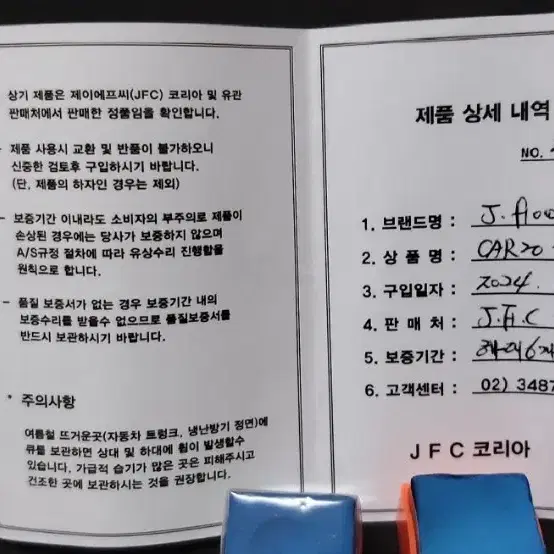 상기 제품은 제이에프씨(JFC) 코리아 및 유관
판매처에서 판매한 정품임을 확인합니다.
- 제품 사용시 교환 및 반품이 불가하오니
신중한 검토후 구입하시기 바랍니다.
(단, 제품의 하자인 경우는 제외)
- 보증기간 이내라도 소비자의 부주의로 제품이
손상된 경우에는 당사가 보증하지 않으며
A/S규정 절차에 따라 유상수리 진행함을
원칙으로 합니다.
- 품질 보증서가 없는 경우 보증기간 내의
보증수리를 받을수 없으므로 품질보증서를
반드시 보관하시기 바랍니다.
* 주의사항
여름철 뜨거운곳(자동차 트렁크, 냉난방기 정면)에
큐를 보관하면 상대 및 하대에 휨이 발생할수
있습니다. 가급적 습기가 많은 곳은 피해주시고
건조한 곳에 보관하시는 것을 권장합니다.
제품 상세 내역
NO.
1. 브랜드명 : J.
2. 상 품 명 : CAR20
3. 구입일자 : 2024.
4. 판 매 처 :
5. 보증기간 :
6. 고객센터 : 02) 3487
JFC 코리아